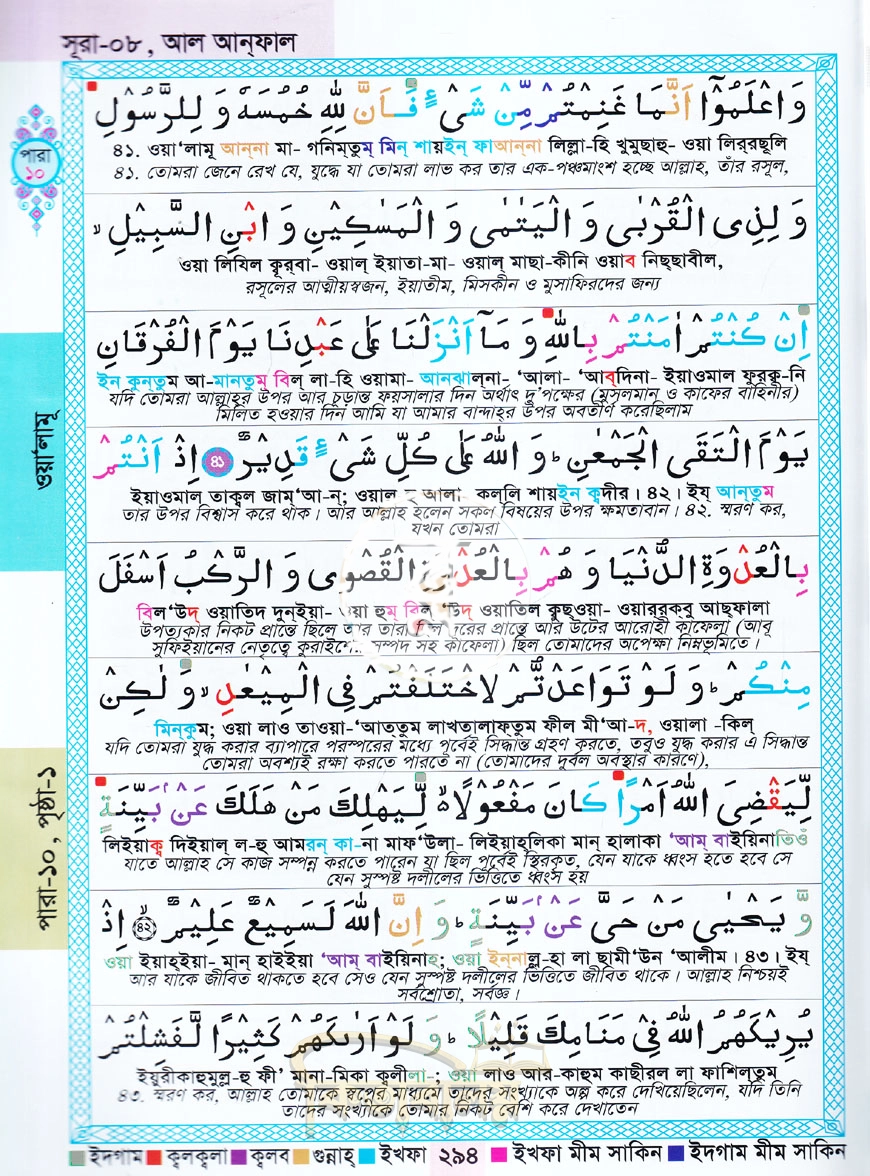 সূরা-০৮, আল আন্ফাল
পারা
১০
وَ اعْلَمُوْۤا اَنَّمَا غَنِمْتُمْ مِّنْ شَیْءٍ فَاَنَّ لِلّٰهِ خُمُسَهٗ وَ لِلرَّسُوْلِ
৪১. ওয়া'লামূ আন্‌না মা- গনিম্‌তুম্‌ মিন্‌ শায়ইন্‌ ফাআন্‌না লিল্লা-হি খুমুছাহূ- ওয়া লির্‌রছূলি
৪১. তোমরা জেনে রেখ যে, যুদ্ধে যা তোমরা লাভ কর তার এক-পঞ্চমাংশ হচ্ছে আল্লাহ, তাঁর রসূল,
وَ لِذِی الْقُرْبٰی وَ الْیَتٰمٰی وَ الْمَسٰكِیْنِ وَ ابْنِ السَّبِیْلِ ۙ
ওয়া লিযিল ক্বুর্‌বা- ওয়াল্‌ ইয়াতা-মা- ওয়াল্‌ মাছা-কীনি ওয়াব নিছ্‌ছাবীল,
রসূলের আত্মীয়স্বজন, ইয়াতীম, মিসকীন ও মুসাফিরদের জন্য
اِنْ كُنْتُمْ اٰمَنْتُمْ بِاللّٰهِ وَ مَاۤ اَنْزَلْنَا عَلٰی عَبْدِنَا یَوْمَ الْفُرْقَانِ
ইন কুন্‌তুম আ-মান্‌তুম্‌ বিল্‌ লা-হি ওয়ামা- আন্‌ঝাল্‌না- 'আলা- 'আব্‌দিনা- ইয়াওমাল ফুর্‌ক্বা-নি
যদি তোমরা আল্লাহর উপর আর চূড়ান্ত ফয়সালার দিন অর্থাৎ দু'পক্ষের (মুসলমান ও কাফের বাহিনীর)
মিলিত হওয়ার দিন আমি যা আমার বান্দাহর উপর অবতীর্ণ করেছিলাম
یَوْمَ الْتَقَی الْجَمْعٰنِ ؕ وَ اللّٰهُ عَلٰی كُلِّ شَیْءٍ قَدِیْرٌ ৪১ اِذْ اَنْتُمْ
ইয়াওমাল তাক্বল জাম্‌'আ-ন্‌; ওয়াল আলা কুল্‌লি শায়ইন ক্বদীর। ৪২। ইয্‌ আন্‌তুম
তার উপর বিশ্বাস করে থাক। আর আল্লাহ হলেন সকল বিষয়ের উপর ক্ষমতাবান। ৪২. স্মরণ কর,
যখন তোমরা
بِالْعُدْوَةِ الدُّنْیَا وَ هُمْ بِالْعُدْوَةِ الْقُصْوٰی وَ الرَّكْبُ اَسْفَلَ
বিল 'উদ্‌ ওয়াতিদ দুন্‌ইয়া- ওয়া হুম্‌ বিল্‌ 'উদ্‌ ওয়াতিল ক্বুছ্‌ওয়া- ওয়ার্‌রক্‌বু আছ্‌ফালা
উপত্যকার নিকট প্রান্তে ছিলে আর তারা ছিল দূরের প্রান্তে আর উটের আরোহী কাফেলা (আবূ
সুফিইয়ানের নেতৃত্বে কুরাইশের সম্পদ সহ কাফেলা) ছিল তোমাদের অপেক্ষা নিম্নভূমিতে।
مِنْكُمْ ؕ وَ لَوْ تَوَاعَدْتُّمْ لَاخْتَلَفْتُمْ فِی الْمِیْعٰدِ ۙ وَ لٰكِنْ
মিন্‌কুম; ওয়া লাও তাওয়া-'আত্‌তুম লাখ্‌তালাফ্‌তুম ফীল মী'আ-দ, ওয়ালা -কিল্‌
যদি তোমরা যুদ্ধ করার ব্যাপারে পরস্পরের মধ্যে পূর্বেই সিদ্ধান্ত গ্রহণ করতে, তবুও যুদ্ধ করার এ সিদ্ধান্ত
তোমরা অবশ্যই রক্ষা করতে পারতে না (তোমাদের দুর্বল অবস্থার কারণে),
لِّیَقْضِیَ اللّٰهُ اَمْرًا كَانَ مَفْعُوْلًا ۙ لِّیَهْلِكَ مَنْ هَلَكَ عَنْۢ بَیِّنَةٍ
লিইয়াক্ব্‌ দিইয়াল্‌ ল-হু আমরন্‌ কা-না মাফ্‌'উলা- লিইয়াহ্‌লিকা মান্‌ হালাকা 'আম্‌ বাইয়িনাতিওঁ
যাতে আল্লাহ সে কাজ সম্পন্ন করতে পারেন যা ছিল পূর্বেই স্থিরকৃত, যেন যাকে ধ্বংস হতে হবে সে
যেন সুস্পষ্ট দলীলের ভিত্তিতে ধ্বংস হয়
وَّ یَحْیٰی مَنْ حَیَّ عَنْۢ بَیِّنَةٍ ؕ وَ اِنَّ اللّٰهَ لَسَمِیْعٌ عَلِیْمٌ ৪২ اِذْ
ওয়া ইয়াহ্‌ইয়া- মান্‌ হাইইয়া 'আম্‌ বাইয়িনাহ; ওয়া ইন্‌নাল্ল-হা লা ছামী'উন 'আলীম। ৪৩। ইয্‌
আর যাকে জীবিত থাকতে হবে সেও যেন সুস্পষ্ট দলীলের ভিত্তিতে জীবিত থাকে। আল্লাহ নিশ্চয়ই
সর্বশ্রোতা, সর্বজ্ঞ।
یُرِیْكَهُمُ اللّٰهُ فِیْ مَنَامِكَ قَلِیْلًا ؕ وَ لَوْ اَرٰىكَهُمْ كَثِیْرًا لَّفَشِلْتُمْ
ইয়ুরীকাহুমুল্ল-হু ফী' মানা-মিকা ক্বলীলা-; ওয়া লাও আর-কাহুম কাছীরল লা ফাশিল্‌তুম
৪৩. স্মরণ কর, আল্লাহ তোমাকে স্বপ্নের মাধ্যমে তাদের সংখ্যাকে অল্প করে দেখিয়েছিলেন, যদি তিনি
তাদের সংখ্যাকে তোমার নিকট বেশি করে দেখাতেন
ওয়া'লামূ
পারা-১০, পৃষ্ঠা-১
ইদগাম ক্বলক্বলা ক্বলব গুন্নাহ্ ইখফা ২৯৪ ইখফা মীম সাকিন ইদগাম মীম সাকিন